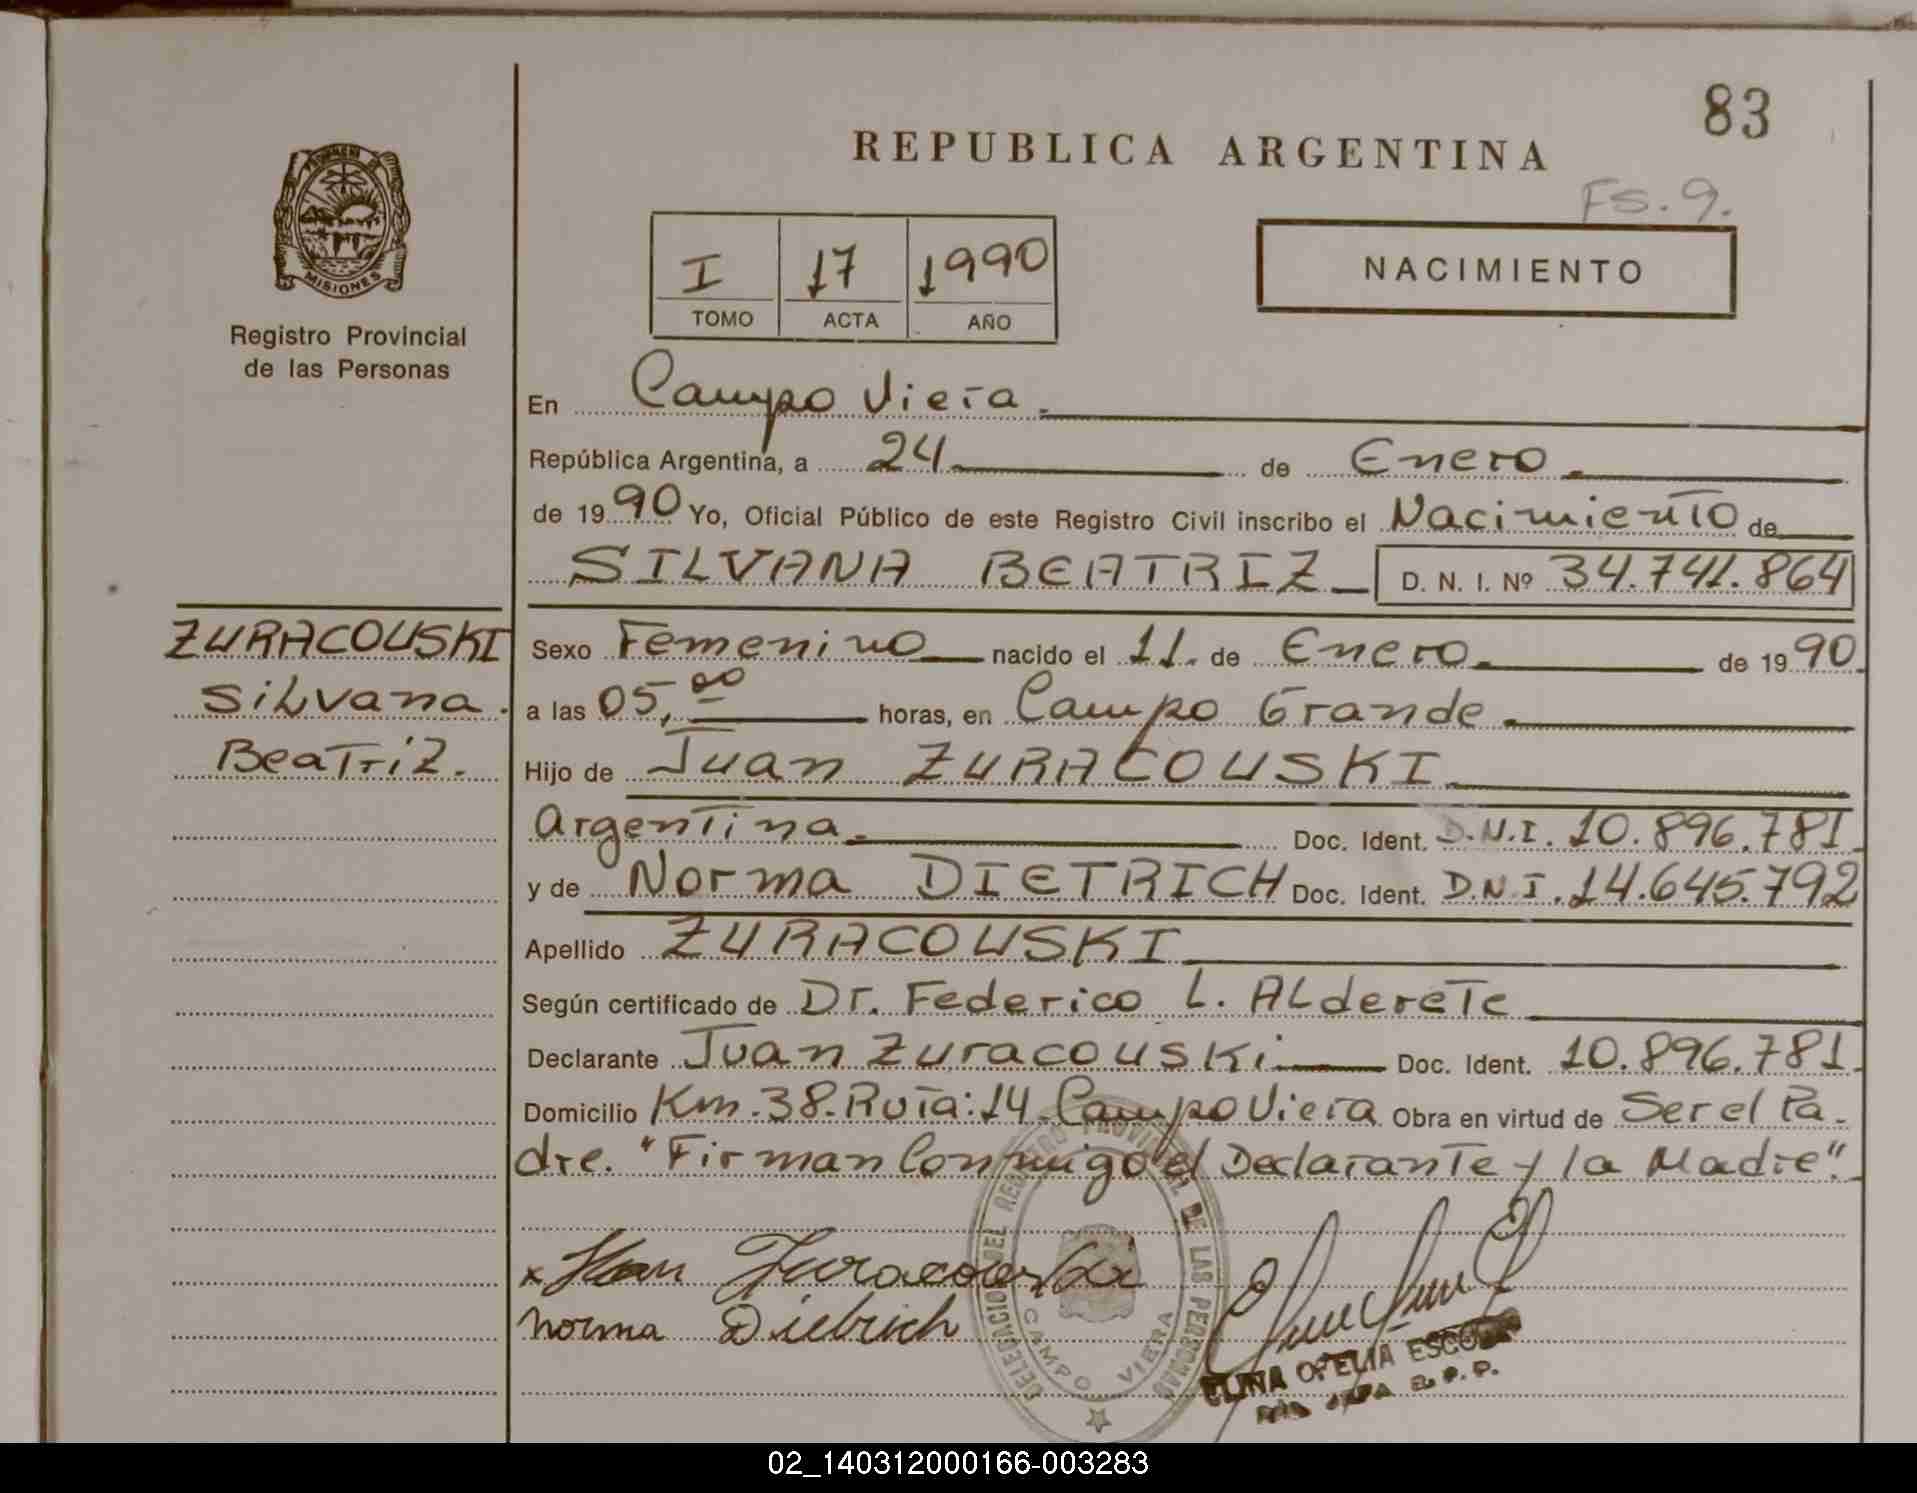 83
REPUBLICA ARGENTINA
FS. 9.
PROVINCIA DE
MISIONES
Registro Provincial
de las Personas
I 17 1990
TOMO ACTA AÑO
NACIMIENTO
En Campo Viera.
República Argentina, a 24 de Enero.
de 1990 Yo, Oficial Público de este Registro Civil inscribo el Nacimiento de
SILVANA BEATRIZ D. N. I. Nº 34.741.864
ZURACOUSKI
Silvana.
Beatriz.
Sexo Femenino nacido el 11. de Enero. de 1990.
a las 05,00 horas, en Campo Grande.
Hijo de Juan ZURACOUSKI.
Argentina. Doc. Ident. D.N.I. 10.896.781.
y de Norma DIETRICH Doc. Ident. D.N.I. 14.645.792
Apellido ZURACOUSKI
Según certificado de Dr. Federico L. Alderete
Declarante Juan Zuracouski Doc. Ident. 10.896.781.
Domicilio Km. 38. Ruta: 14. Campo Viera Obra en virtud de Ser el Pa-
dre. "Firman Conmigo el Declarante y la Madre".
x Juan Zuracouski
Norma Dietrich
DELEGACION DEL REGISTRO PROVINCIAL DE LAS PERSONAS
CAMPO VIERA
OFELIA
R. P. P.
02_140312000166-003283